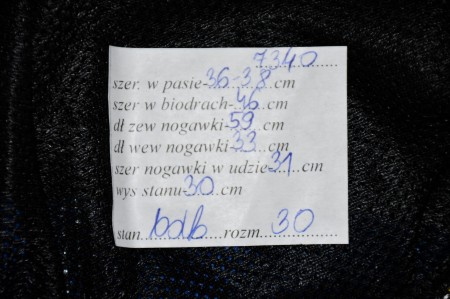 7340
szer. w pasie-36-38 cm
szer w biodrach-46 cm
dł zew nogawki-59 cm
dł wew nogawki-33 cm
szer nogawki w udzie-31 cm
wys stanu-30 cm
stan bdb rozm. 30